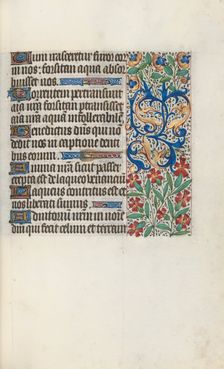 Cum irasceretur furor eor
in nos: forsitan aqua absor
buisset nos.
Torrentem pertransiuit
aīa nr̄a forsitan ptransisset
aīa nr̄a aquā intollerabilē.
Benedictus dn̄s qui nō
dedit nos in captione denti
bus eorum.
Anima nr̄a sicut passer
erepta est de laqueo venantiū
Laqueus contritus est et
nos liberati sumus.
Adiutoriū nr̄m in noīe
dn̄i qui fecit celum et terram